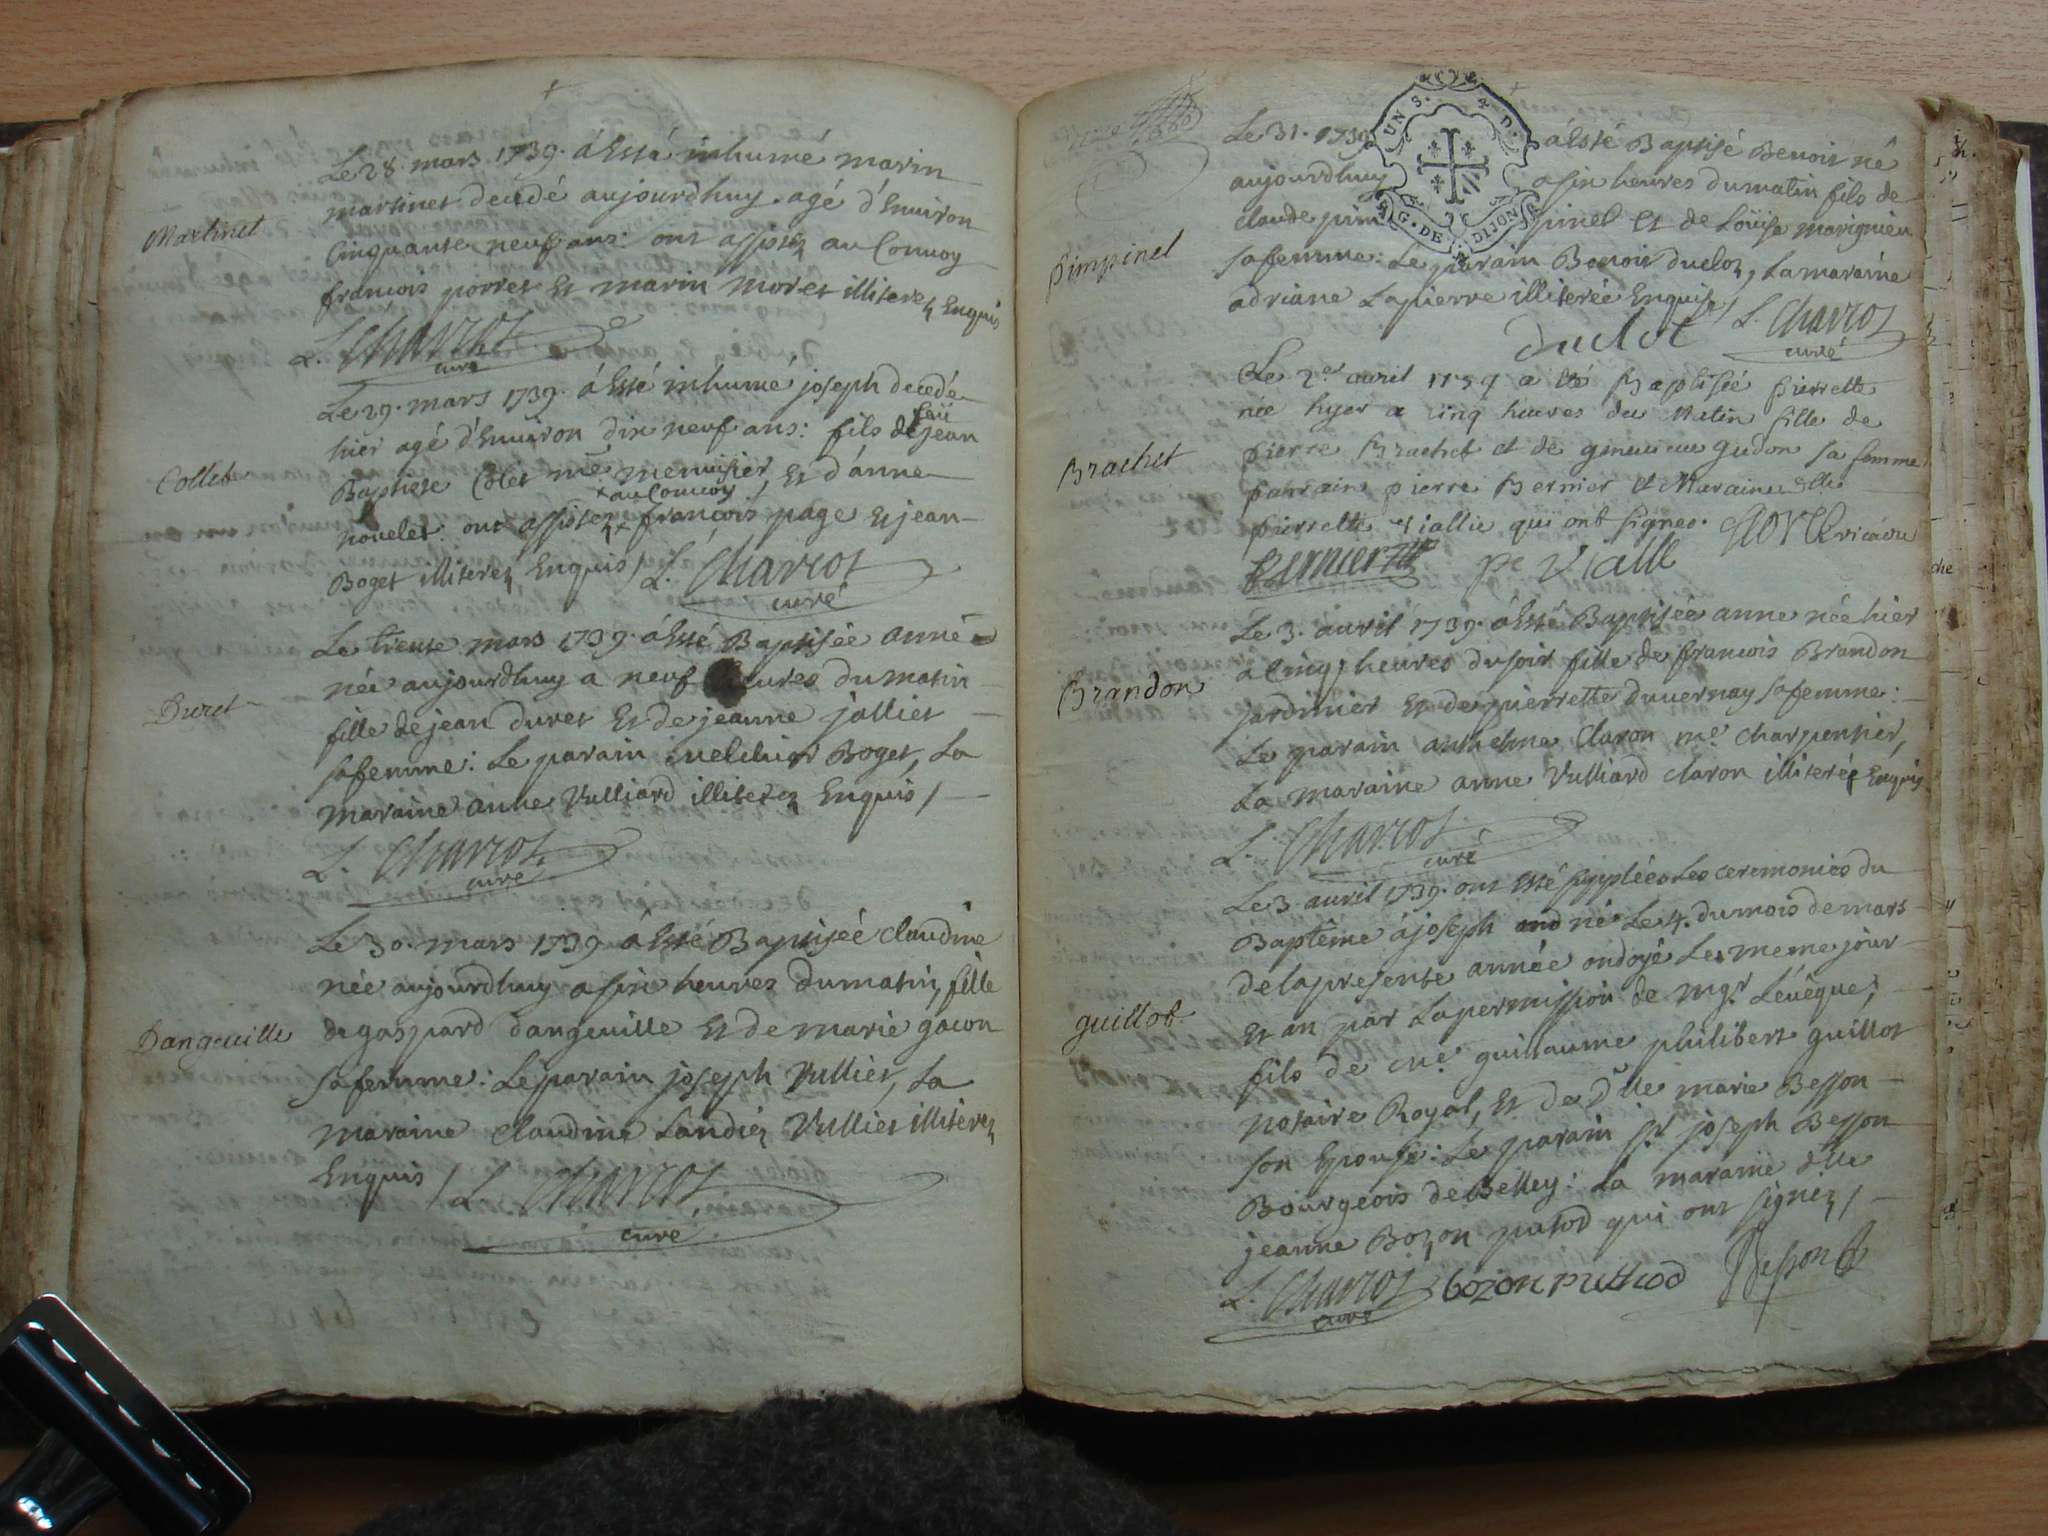 Le 28. mars 1739. á Esté inhumé marin
martinet decedé aujourdhuy. agé d'Environ
Martinet
Cinquante neuf ans: ont assistez au Convoy
francois poeret Et marin Moret illiterez Enquis
L. Charcot
curé
Le 29. mars 1739. á Esté inhumé joseph decedé
hier agé d'Environ dix neuf ans: fils de feü jean
Collet
Baptiste Colet me. menuisier, Et d'anne
novelet: ont assistez au Convoy francois page Et jean
Boget illiterez Enquis / L. Charcot
curé
Le trente mars 1739. á Esté Baptisée anne
née aujourdhuy a neuf heures du matin
Duret
fille de jean duret Et de jeanne jallier
sa femme: Le parain melchior Boget, La
maraine anne Vulliard illiterez Enquis /
L. Charcot
curé
Le 30. mars 1739 á Esté Baptisée claudine
née aujourdhuy a six heures du matin, fille
Dangeuille
de gaspard dangeuille Et de marie gacon
sa femme: Le parain joseph Vullier, La
maraine Claudine Landiez Vullier illiterez
Enquis / L. Charcot
curé
UN S. 4 D.
G. DE DIJON
Le 31. 1739 á Esté Baptisé Benoit né
aujourdhuy a six heures du matin fils de
claude pim pinel Et de Loüise marignieu
Pimpinel
sa femme: Le parain Benoit duclot, La maraine
adriane Lapierre illiterée Enquise /
duclot L. Charcot
curé
Le 2e avril 1739 a été Baptisée pierrette
née hyer a cinq heures du Matin fille de
Brachet
pierre Brachet et de genevieve gudon sa femme
parrain pierre Bernier et Maraine dlle
pierrette viallie qui ont signes. vicaire
Bernier pe vialle
Le 3. avril 1739. á Esté Baptisée anne née hier
a Cinq heures du soir fille de francois Brandon
Brandon
jardinier Et de pierrette duvernay sa femme:
Le parain anthelme Claron me. charpentier,
La maraine anne Vulliard claron illiterés Enquis
L. Charcot
curé
Le 3 avril 1739. ont Esté supplées Les ceremonies du
Baptême á joseph né Le 4. du mois de mars
de la presente année ondoyé Le meme jour
Et an par La permission de mgr. L'évêque,
guillot
fils de me. guillaume philibert guillot
notaire Royal, Et de Dlle marie Besson
son Epouse: Le parain sr. joseph Besson
Bourgeois de Belley: La maraine dlle
jeanne Bozon putod qui ont signez /
L. Charcot bozon puthod Besson
curé